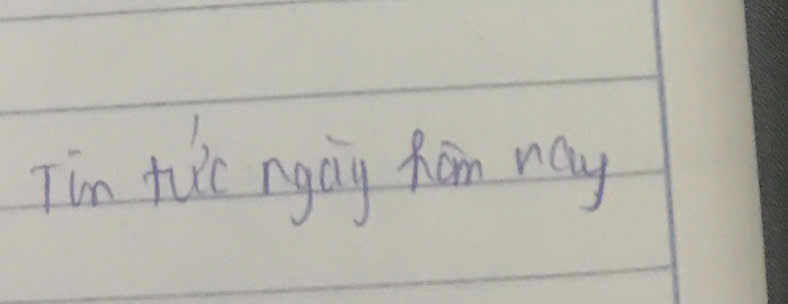 Tin tức ngày hôm nay